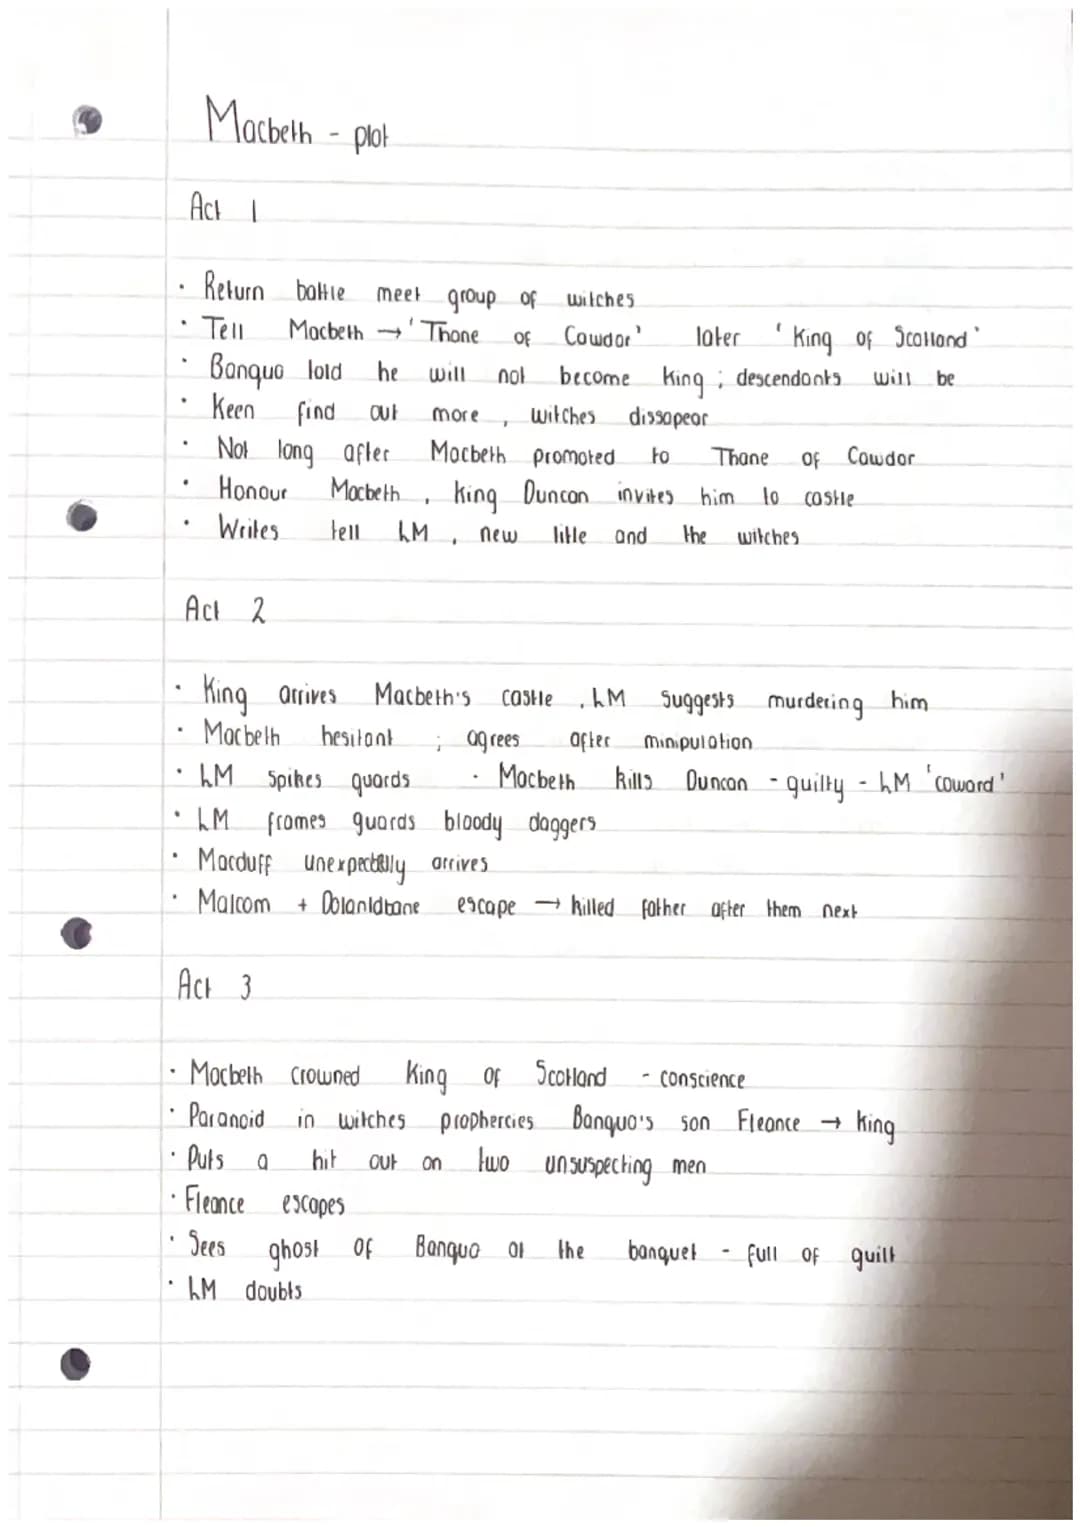 Macbeth - plot
Act 1
· Return battle meet group of witches
· Tell Macbeth → 'Thane of Cawdor' later 'King of Scotland'
· Banquo told he will not become King ; descendants will be
· Keen find out more , witches dissapear
· Not long after Macbeth promoted to Thane of Cawdor
· Honour Macbeth , King Duncan invites him to castle
· Writes tell LM , new title and the witches
Act 2
· King arrives Macbeth's castle , LM suggests murdering him
· Macbeth hesitant ; agrees after minipulation
· LM Spikes guards · Macbeth kills Duncan - guilty - LM 'coward'
· LM frames guards bloody daggers
· Macduff unexpectedly arrives
· Malcom + Dolanldbane escape → killed father after them next
Act 3
· Macbeth crowned King of Scotland - conscience
· Paranoid in witches prophercies Banquo's son Fleance → King
· Puts a hit out on two unsuspecting men
· Fleance escapes
· Sees ghost of Banquo at the banquet - full of guilt
· LM doubts